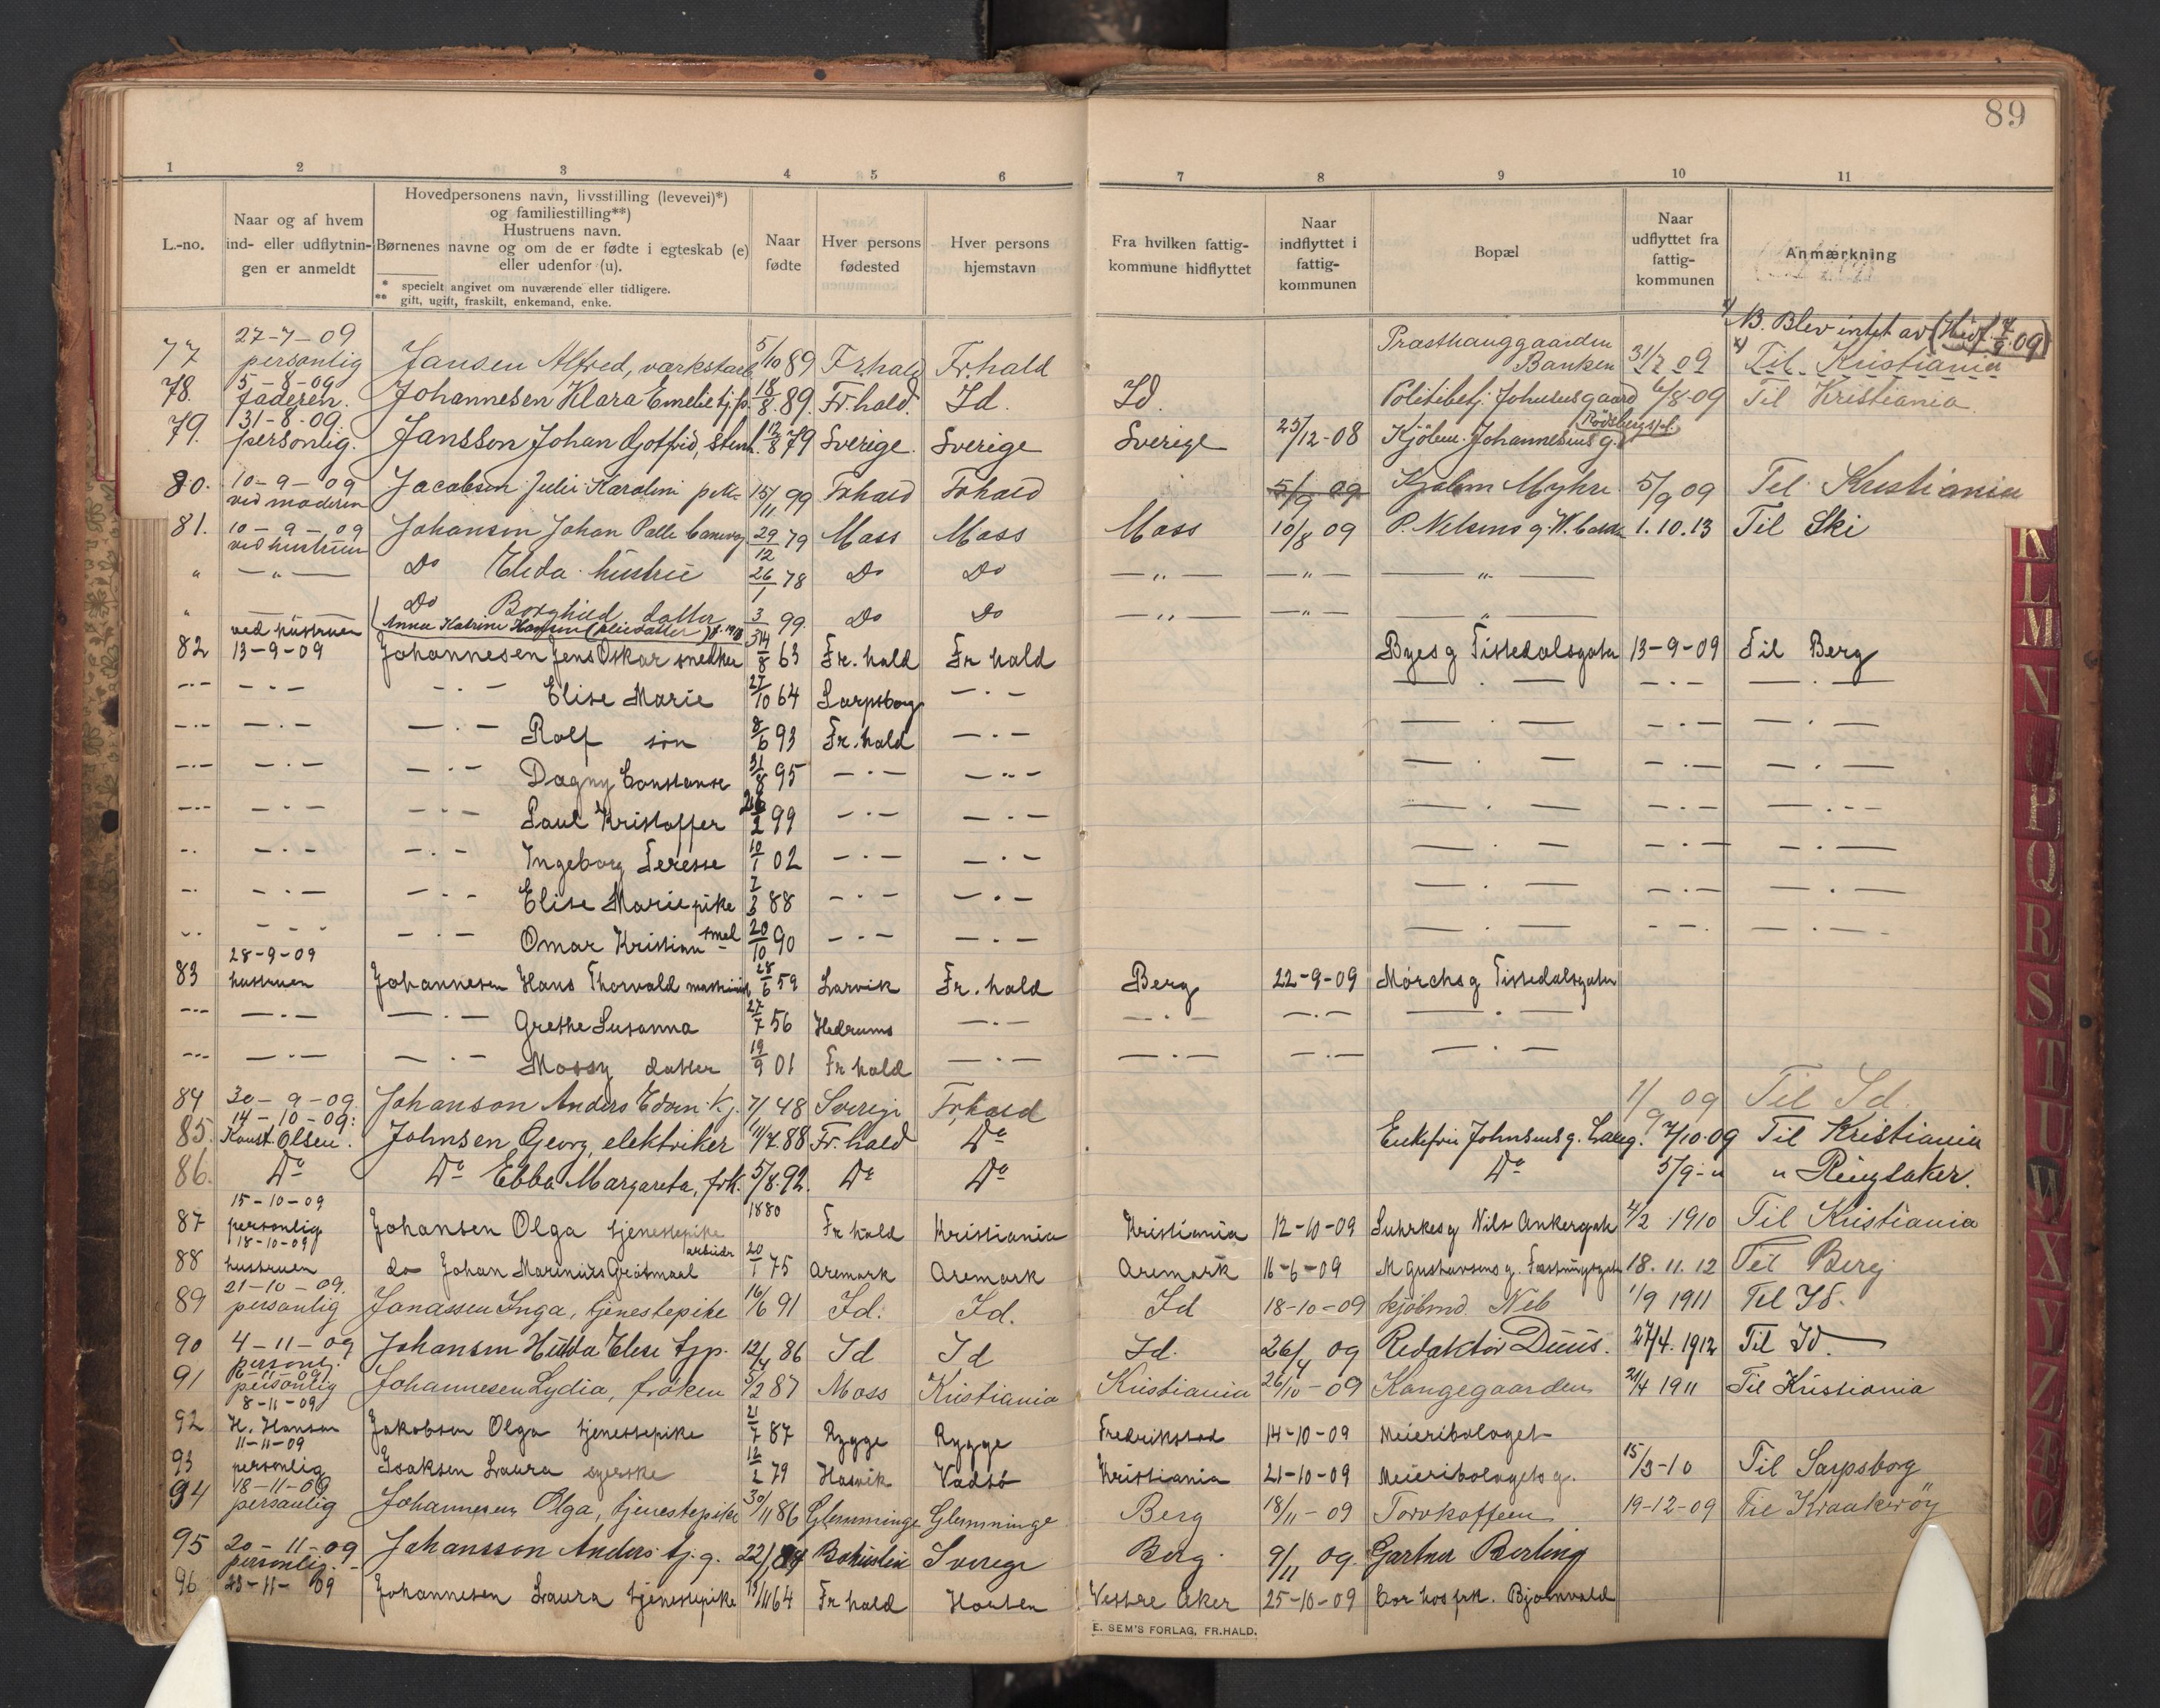 89
1 2 3 4 5 6 7 8 9 10 11
L.-no.
Naar og af hvem
ind- eller udflytnin-
gen er anmeldt
Hovedpersonens navn, livsstilling (levevei)*)
og familiestilling**)
Hustruens navn.
Børnenes navne og om de er fødte i egteskab (e)
eller udenfor (u).
* specielt angivet om nuværende eller tidligere.
** gift, ugift, fraskilt, enkemand, enke.
Naar
fødte
Hver persons
fødested
Hver persons
hjemstavn
Fra hvilken fattig-
kommune hidflyttet
Naar
indflyttet i
fattig-
kommunen
Bopæl
Naar
udflyttet fra
fattig-
kommunen
Anmærkning
x) NB. Blev intet av
77 27-7-09 personlig Jansen Alfred, værkstarb 5/10 89 Frhald Fr.hald Banken 31/7 09 x) Til Kristiania
78. 5-8-09 faderen. Johannesen Klara Emelie tj.p. 18/8 89. Fr.hald. Id. Id. 6/8-09 Til Kristiania.
79. 31-8-09. personlig. Jansson Johan Gotfrid, stenh. 12/8 79 Sverige. Sverige Sverige 25/12-08 Kjöbm. Johannesens g. Rödsbergst.
80. 10-9-09 ved moderen Jacobsen Julie Karoline 15/11 99 Frhald Frhald 5/9 09 Kjøbm Myhre 5/9 09 Til Kristiania
81. 10-9-09 ved hustruen Johansen Johan Palle 29/12 79 Moss Moss Moss 10/8 09 P. Nilsens g. 1.10.13 Til Ski
" — " — Do Elida hustru 26/1 78 Do Do — " — — " — — " —
" Do Borghild datter 3/3 99. Do Do — " — — " — — " —
Anna Katrine Hansen (pleiedatter)
82 ved hustruen 13-9-09 Johannesen Jens Oskar snedker 14/8 63 Fr.hald Fr hald Byes g Tistedalsgaten 13-9-09 Til Berg
— · — — · — — · — Elise Marie 27/10 64 Sarpsborg — · — — · — — · — — · —
— · — — · — — · — Rolf søn 8/6 93 Fr.hald — · — — · — — · — — · —
— · — — · — — · — Dagny Constanse 31/8 95 — · — — · — — · — — · — — · —
— · — — · — — · — Paul Kristoffer 26/2 99 — · — — · — — · — — · — — · —
— · — · — — · — Ingeborg Teresse 10/1 02 — · — — · — — · — — · — — · —
— · — · — — · — Elise Marie pike 7/3 88 — · — — · — — · — — · — — · —
— · — · — — · — Omar Kristian 20/10 90 — · — — · — — · — — · — — · —
83 28-9-09 hustruen Johannesen Hans Thorvald maskinist 28/6 59 Larvik Fr.hald Berg 22-9-09 Mørchs g Tistedalsgaten
— · — — · — — · — Grethe Susanna 27/7 56 Hedrums — · — — · — — · — — · —
— · — — · — — · — Mossy datter 19/9 01 Fr hald — · — — · — — · — — · —
84 30-9-09 Johanson Anders Edvin 7/1 48 Sverige Frhald 1/9 09 Til Id.
85. 14-10-09: Konst. Olsen. Johnsen Georg, elektriker 11/7.88 Fr.hald Do Enkefru Johnsens g. 7/10-09 Til Kristiania
86. Do Do Ebba Margareta, frk. 5/8.92. Do Do Do 5/9-" " Ringsaker.
87 15-10-09 personlig Johansen Olga tjenestepike 1880 Fr hald Kristiania Kristiania 12-10-09 Nils Ankersgate 4/2 1910 Til Kristiania
88 18-10-09 hustruen do Johan Marinius arbeider 20/1 75 Aremark Aremark Aremark 16-6-09 M Gustavsens g. 18.11.12 Til Berg
89 21-10-09. personlig Jonassen Inga, tjenestepike 16/6 91 Id. Id. Id 18-10-09 Kjøbmd. Neb 1/9 1911 Til Id.
90 4-11-09 personl. Johansen Hulda Elise tjp. 12/4 86 Id Id Id. 26/4 09 Redaktör Duus. 27/4.1912 Til Id.
91 6-11-09 personlig Johannesen Lydia, frøken 5/2 87 Moss Kristiania Kristiania 26/10-09 Kongegaarden 21/4 1911 Til Kristiania
92 8-11-09 H. Hansen Jakobsen Olga tjenestepike 21/7 87 Rygge Rygge Fredrikstad 14-10-09 Meieribolaget
93 11-11-09 personlig Isaksen Laura syerske 12/2 79 Hasvik Vadsø Kristiania 21-10-09 Meieribolagets g. 15/3-10 Til Sarpsborg
94 18-11-09 personlig Johannesen Olga, tjenestepike 30/11 86 Glemminge Glemminge Berg 18/11-09 Torvkaffeen 19-12-09 Til Kraakerøy
95 20-11-09 personlig. Johansson Anders tj.g. Bohuslen Sverige Berg 9/11 09. Gartner Berling
96 23-11-09 Johannesen Laura tjenestepike 13/11 64 Fr hald Horten Vestre Aker 25-10-09 Bor hos frk. Bjørnvald
E. SEM'S FORLAG, FR.HALD.
K
L
M
N
P
Q
R
S
T
U
W
X
Y
Z
Æ
Ø